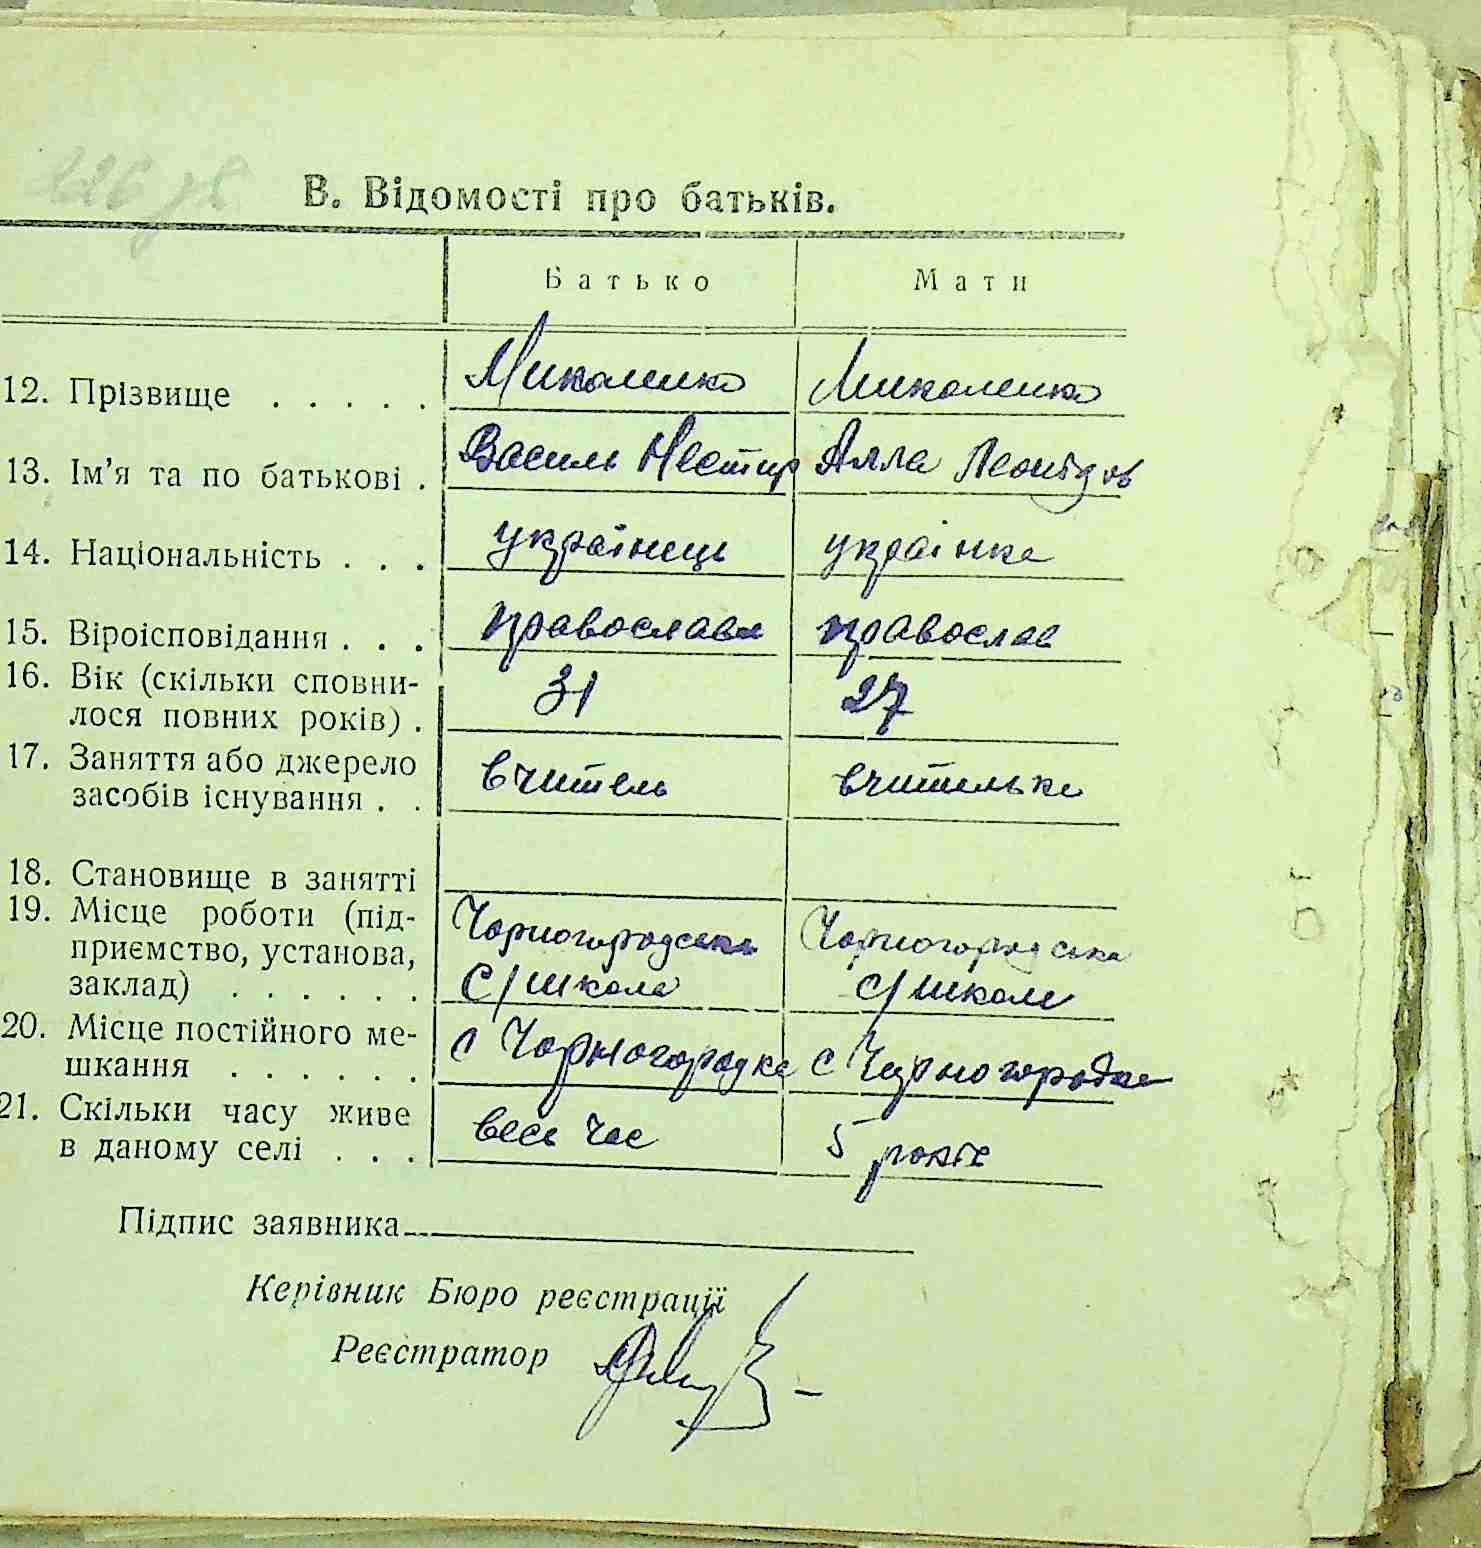 В. Відомості про батьків.
Батько Мати
12. Прізвище . . . . . Миколенко Миколенко
13. Ім'я та по батькові . Василь Нестир Алла Леонідов
14. Національність . . . українець українка
15. Віроісповідання . . . православн православ
16. Вік (скільки сповни-
лося повних років) . 31 27
17. Заняття або джерело
засобів існування . . вчитель вчителька
18. Становище в занятті
19. Місце роботи (під-
приємство, установа, Чорногородська Чорногородська
заклад) . . . . . . с/школа с/школа
20. Місце постійного ме-
шкання . . . . . . с Чорногородка с Чорногородка
21. Скільки часу живе
в даному селі . . . весь час 5 років
Підпис заявника
Керівник Бюро реєстрації
Реєстратор